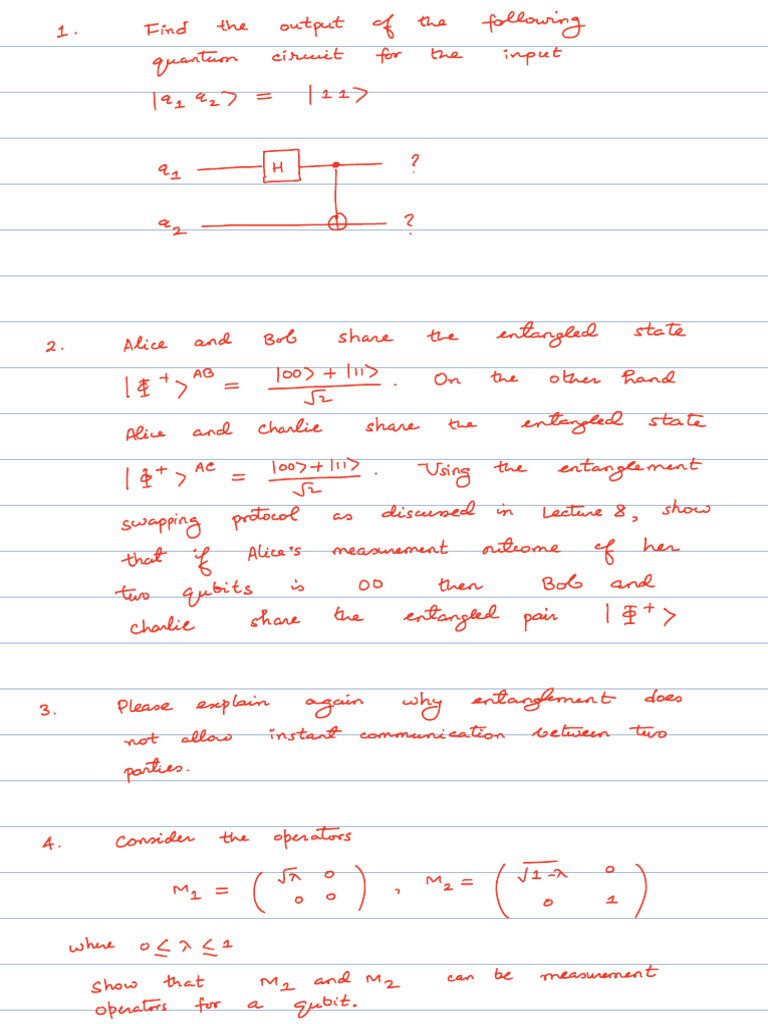 1. Find the output of the following
quantum circuit for the input
|q₁ q₂⟩ = |11⟩
q₁ H ?
q₂ ?
2. Alice and Bob share the entangled state
|Φ⁺⟩ᴬᴮ = (|00⟩+|11⟩)/√2 . On the other hand
Alice and Charlie share the entangled state
|Φ⁺⟩ᴬᶜ = (|00⟩+|11⟩)/√2 . Using the entanglement
swapping protocol as discussed in Lecture 8, show
that if Alice's measurement outcome of her
two qubits is 00 then Bob and
Charlie share the entangled pair |Φ⁺⟩
3. Please explain again why entanglement does
not allow instant communication between two
parties.
4. Consider the operators
M₁ = (√λ 0; 0 0) , M₂ = (√1-λ 0; 0 1)
where 0 ≤ λ ≤ 1
Show that M₁ and M₂ can be measurement
operators for a qubit.